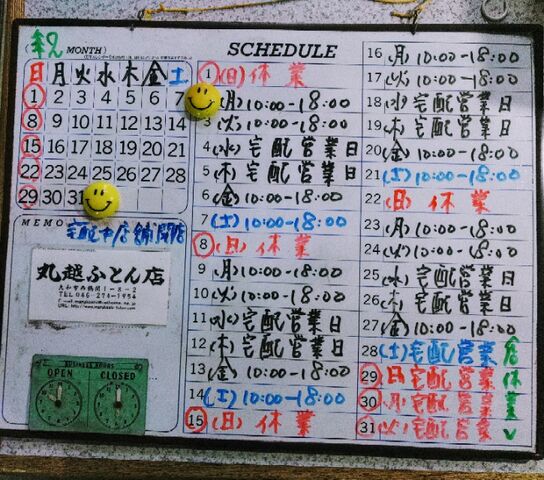 MONTH
日 月 火 水 木 金 土
1 2 3 4 5 6 7
8 9 10 11 12 13 14
15 16 17 18 19 20 21
22 23 24 25 26 27 28
29 30 31
MEMO
宅配中店舗閉店
丸越ふとん店
大和市西鶴間1-8-2
TEL 046-274-1954
BUSINESS HOURS
OPEN CLOSED
SCHEDULE
1 (日) 休業
(月) 10:00-18:00
3 (火) 10:00-18:00
4 (水) 宅配営業日
5 (木) 宅配営業日
6 (金) 10:00-18:00
7 (土) 10:00-18:00
8 (日) 休業
9 (月) 10:00-18:00
10 (火) 10:00-18:00
11 (水) 宅配営業日
12 (木) 宅配営業日
13 (金) 10:00-18:00
14 (土) 10:00-18:00
15 (日) 休業
16 (月) 10:00-18:00
17 (火) 10:00-18:00
18 (水) 宅配営業日
19 (木) 宅配営業日
20 (金) 10:00-18:00
21 (土) 10:00-18:00
22 (日) 休業
23 (月) 10:00-18:00
24 (火) 10:00-18:00
25 (水) 宅配営業日
26 (木) 宅配営業日
27 (金) 10:00-18:00
28 (土) 宅配営業 店
29 (日) 宅配営業 休
30 (月) 宅配営業 業
31 (火) 宅配営業